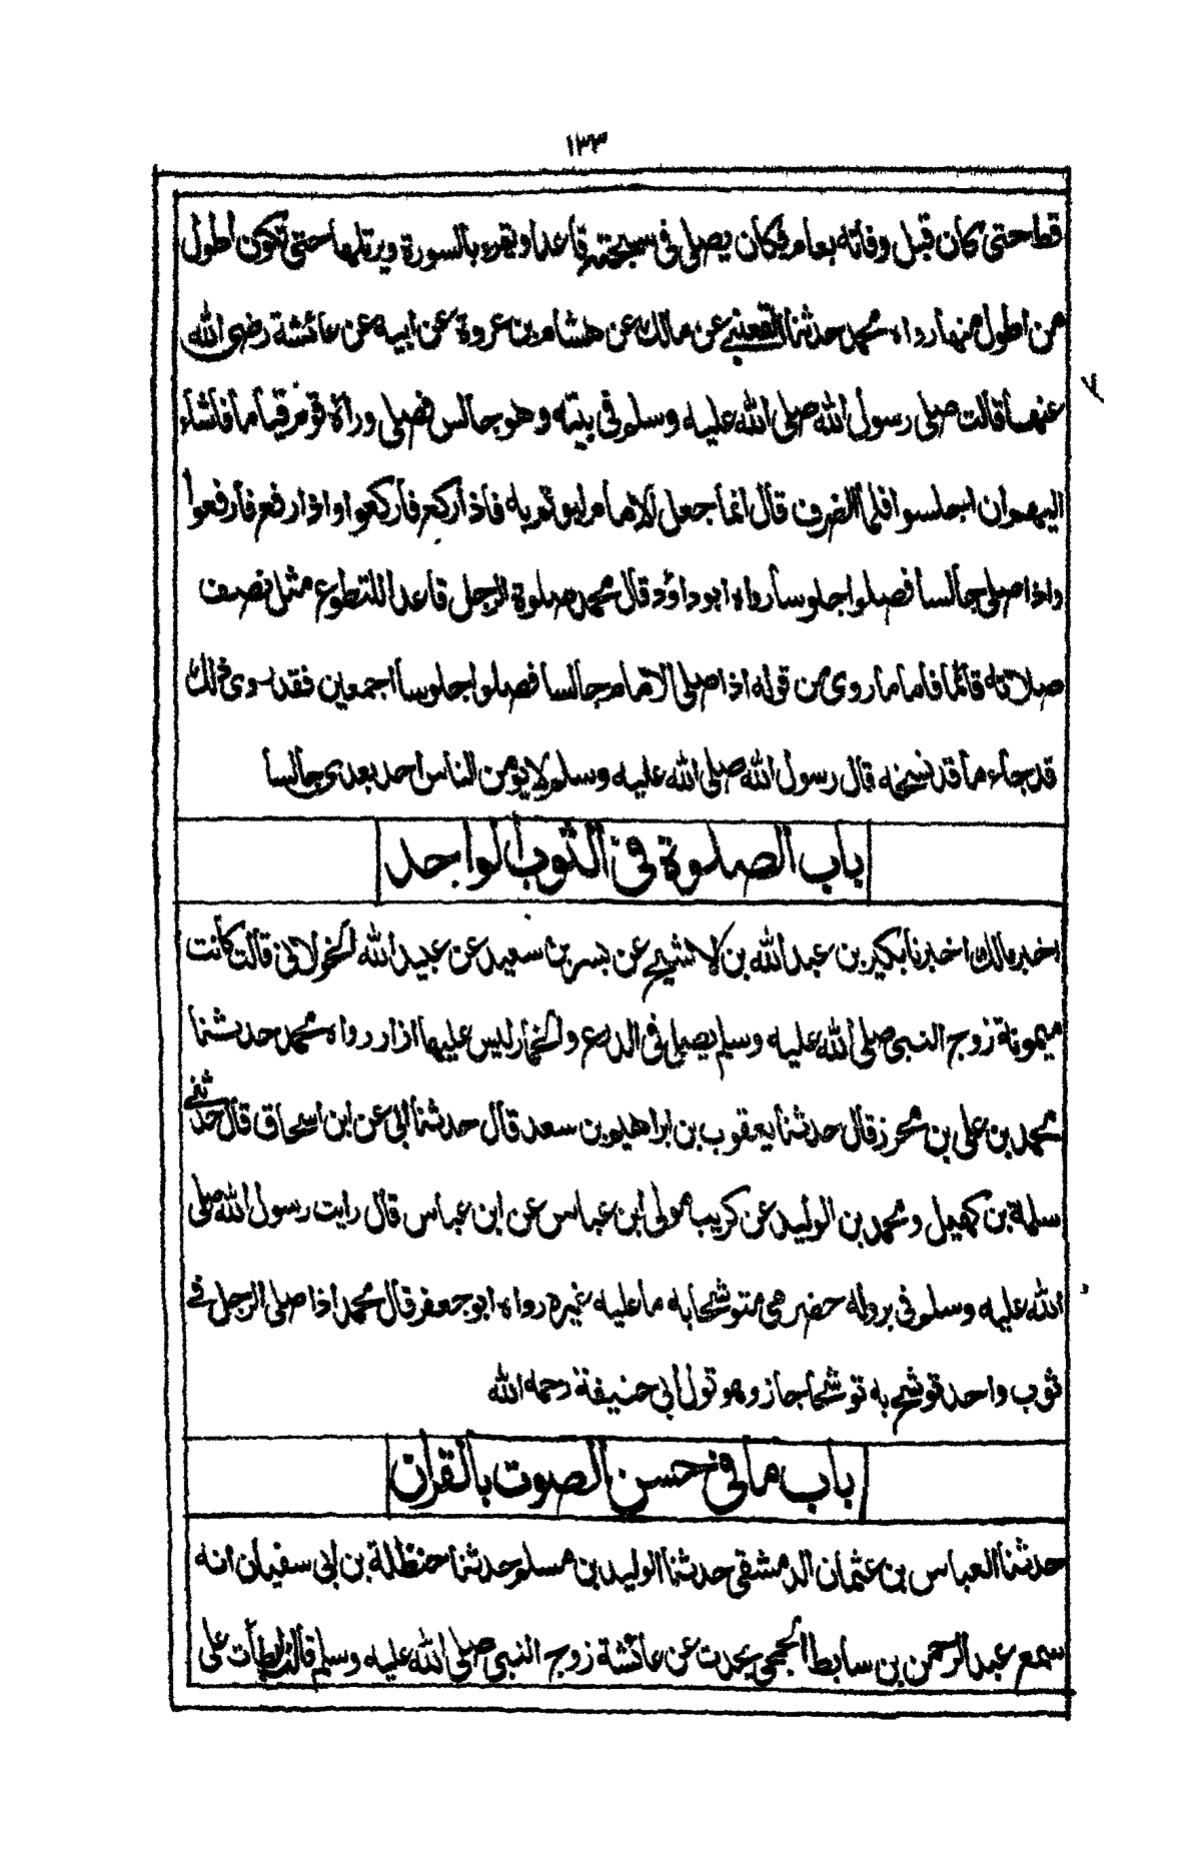 ١٣٣
قط حتى كان قبل وفاته بعام فكان يصلى فى سبحته قاعدا ويقرء بالسورة ويرتلها حتى تكون اطول
من اطول منها رواه محمد حدثنا القعنبي عن مالك عن هشام بن عروة عن ابيه عن عائشة رضى الله
عنها قالت صلى رسول الله صلى الله عليه وسلم فى بيته وهو جالس فصلى وراءة قوم قياما فاشاء
اليهم ان اجلسوا فلما انصرف قال انما جعل الامام ليؤتم به فاذا ركع فاركعوا واذا رفع فارفعوا
واذا صلى جالسا فصلوا جلوسا رواه ابو داؤد قال محمد صلوة الرجل قاعدا للتطوع مثل نصف
صلاته قائما فاما ما روى من قوله اذا صلى الامام جالسا فصلوا جلوسا اجمعين فقد روى ذلك
قد جاء ما قد نسخه قال رسول الله صلى الله عليه وسلم لا يؤمن الناس احد بعدى جالسا
باب الصلوة فى الثوب الواحد
اخبر مالك اخبرنا بكير بن عبد الله بن الاشج عن بسر بن سعيد عن عبيد الله الخولانى قال كانت
ميمونة زوج النبى صلى الله عليه وسلم يصلى فى الدرع والخمار ليس عليها ازار رواه محمد حدثنا
محمد بن على بن محرز قال حدثنا يعقوب بن ابراهيم بن سعد قال حدثنا ابى عن ابن اسحاق قال حدثنى
سلمة بن كهيل ومحمد بن الوليد عن كريب مولى ابن عباس عن ابن عباس قال رايت رسول الله صلى
الله عليه وسلم فى بردله حضرمى متوشحا به ما عليه غيره رواه ابو جعفر قال محمد اذا صلى الرجل فى
ثوب واحد توشح به توشحا جاز وهو قول ابى حنيفة رحمه الله
باب ما فى حسن الصوت بالقران
حدثنا العباس بن عثمان الدمشقى حدثنا الوليد بن مسلم حدثنا حنظلة بن ابى سفيان انه
سمع عبد الرحمن بن سابط الجمحى يحدث عن عائشة زوج النبى صلى الله عليه وسلم قالت ابطأت على